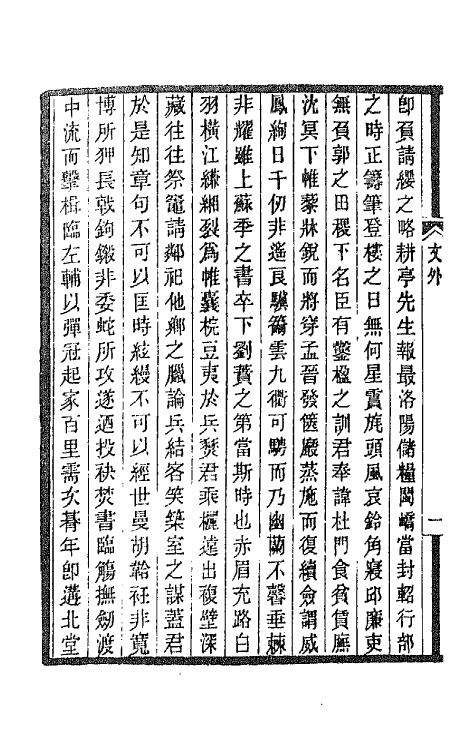 文外
一
卽頁請纓之略耕亭先生報最洛陽儲糧閩嶠當封軺行部
之時正籌筆登樓之日無何星霣旄頭風哀鈴角寢邱廉吏
無負郭之田稷下名臣有鑿楹之訓君奉諱杜門食貧賃廡
沈冥下帷藜牀銳而將穿孟晉發篋嚴蒸施而復續僉謂威
鳳絢日千仞非遙良驥籋雲九衢可騁而乃幽蘭不馨垂棘
非耀雖上蘇季之書卒下劉蕡之第當斯時也赤眉充路白
羽橫江縑緗裂爲帷囊梡豆夷於兵燹君乘欙遠出複壁深
藏往往祭竈請鄰祀他鄉之臘論兵結客笑築室之謀蓋君
於是知章句不可以匡時絃縵不可以經世曼胡韐衽非寬
博所狎長戟鉤鍛非委蛇所攻遂迺投袂焚書臨觴撫劒渡
中流而擊楫臨左輔以彈冠起家百里需次朞年卽遘北堂